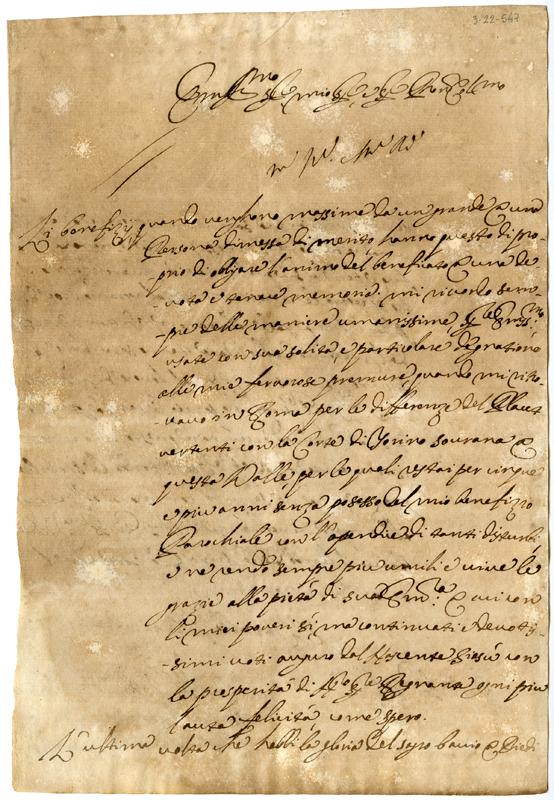 3-22-547
Em.mo Sig.e mio Sig.e e Sig.e Pron.e Col.mo
Li benefizij quando venghono massime da un grande a una
Persona dimessa di merito hanno questo di pro-
prio di obligare l'animo del beneficato a una de-
vota e tenace memoria. mi ricordo sem-
-pre delle maniere umanissime
usate con sua solita e particolare degnatione
alle mie fervorose premure quando mi ritro-
vavo in Roma per le differenze del Placet
vertenti con la Corte di Torino sovrana a
questa Valle per le quali restai per cinque
e più anni senza possesso del mio benefizio
Parochiale con l'apendice di tanti disturbi
e ne rendo sempre più umili e vive le
grazie alla pietà di sua Em.a a cui con
li miei poveri sì ma continuati e devotis-
-simi voti auguro dal Nascente Giesù con
la prosperità di regnante ogni più
lauta felicità come spero.
L'ultima volta che hebbi la gloria del sagro bacio a Piedi